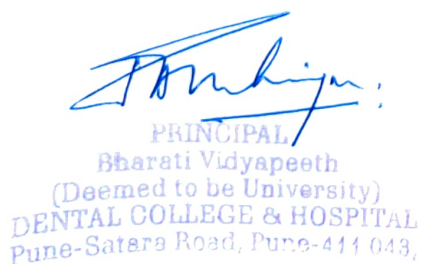 PRINCIPAL
Bharati Vidyapeeth
(Deemed to be University)
DENTAL COLLEGE & HOSPITAL
Pune-Satara Road, Pune-411 043,